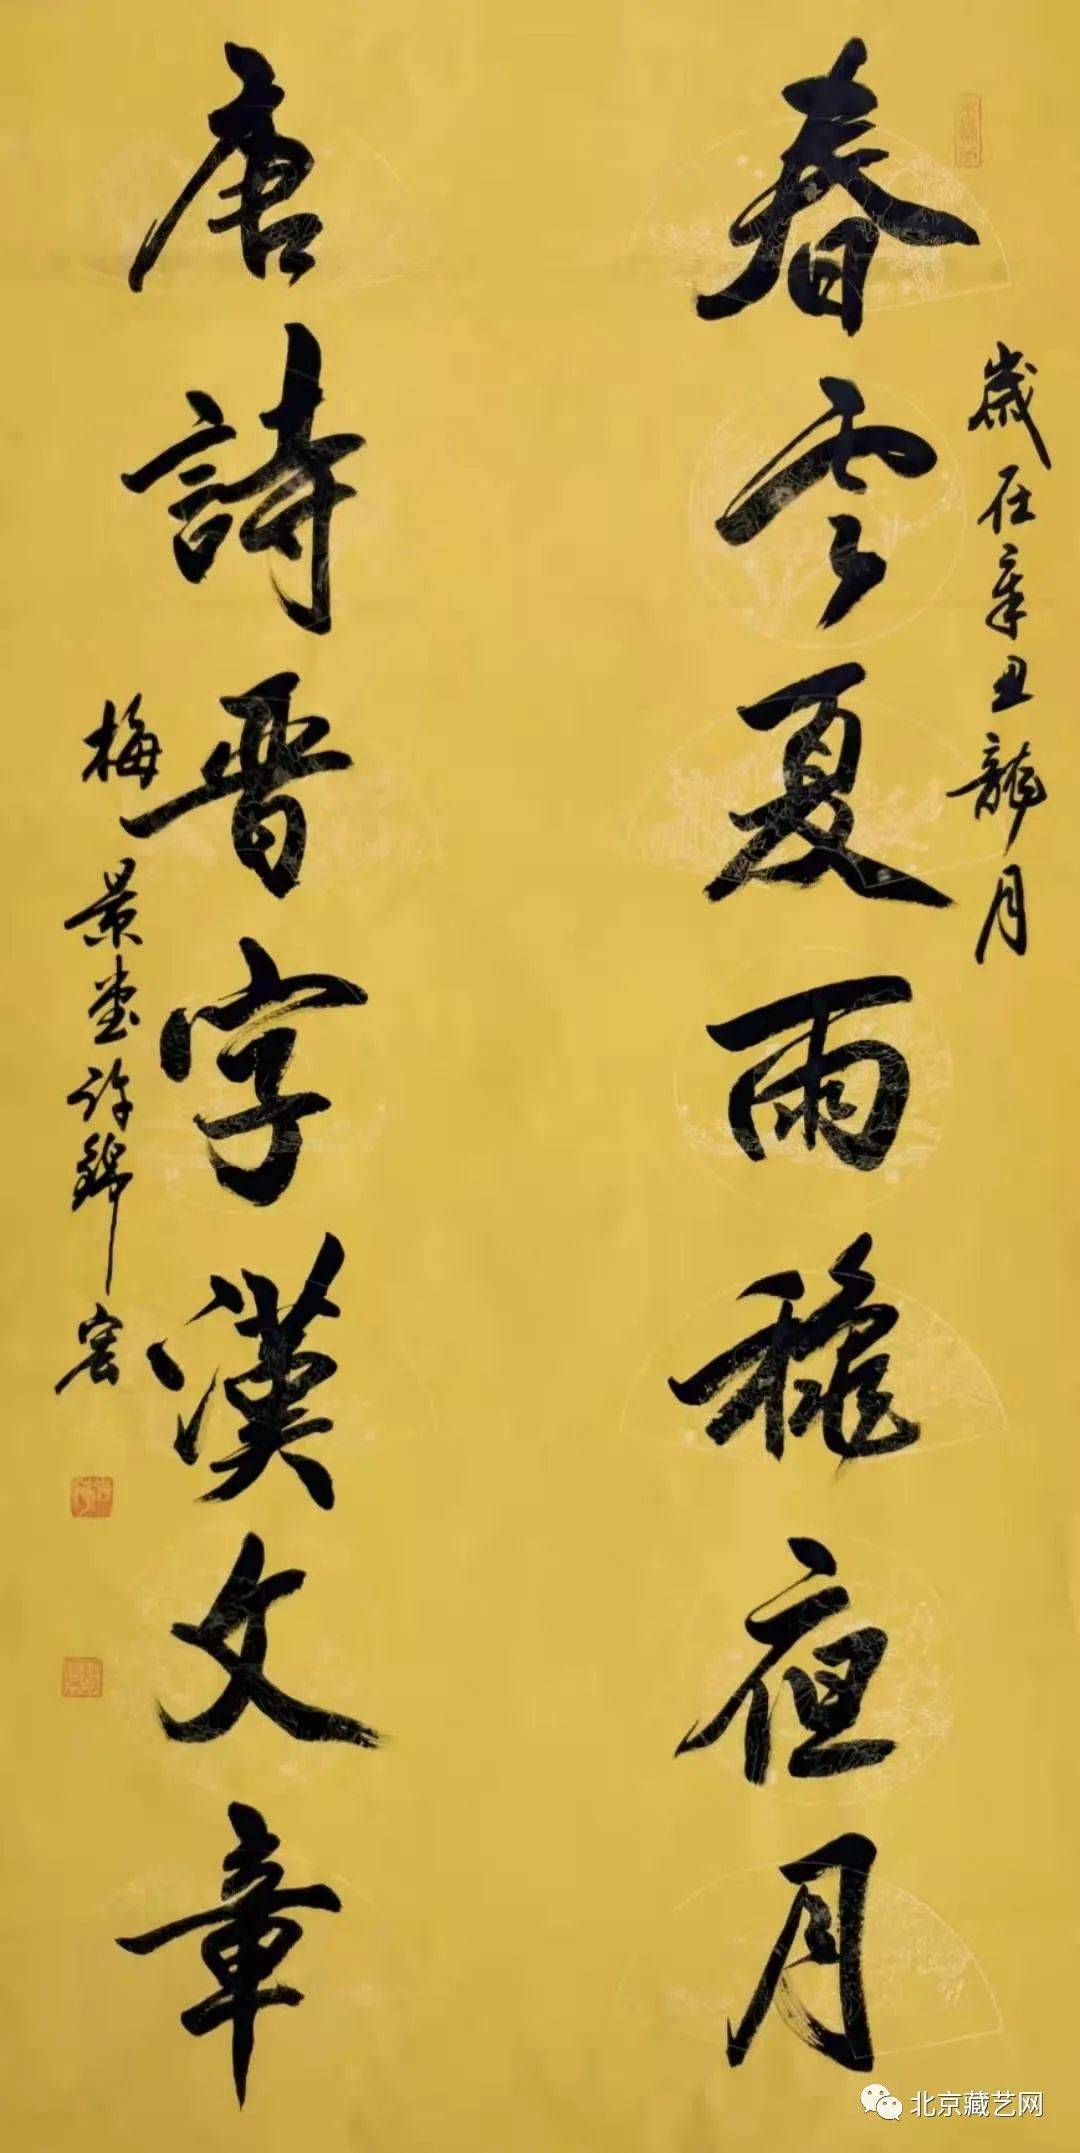 歲在辛丑龍月
春雲夏雨龝夜月
唐詩晋字漢文章
梅景堂許錦宏
北京藏艺网